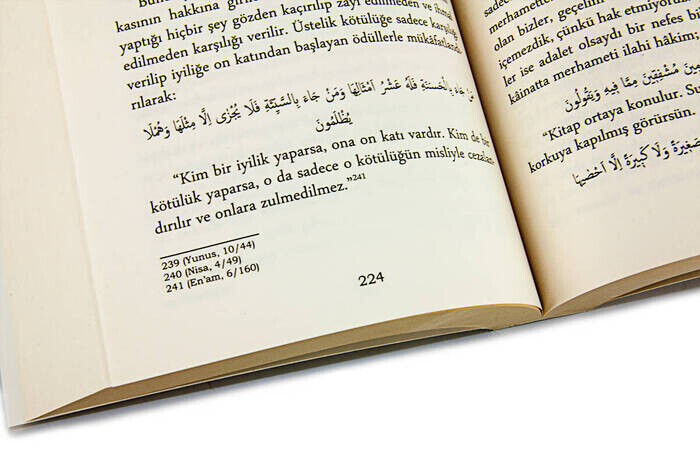 kasının hakkına
yaptığı hiçbir şey gözden kaçırılıp zayi edilmeden ve
edilmeden karşılığı verilir. Üstelik kötülüğe sadece karşılığı
verilip iyiliğe on katından başlayan ödüllerle mükâfatlandı
rılarak:
مَنْ جَاءَ بِالْحَسَنَةِ فَلَهُ عَشْرُ اَمْثَالِهَا وَمَنْ جَاءَ بِالسَّيِّئَةِ فَلَا يُجْزٰى اِلَّا مِثْلَهَا وَهُمْ لَا
يُظْلَمُونَ
“Kim bir iyilik yaparsa, ona on katı vardır. Kim de bir
kötülük yaparsa, o da sadece o kötülüğün misliyle cezalan-
dırılır ve onlara zulmedilmez.”241
239 (Yunus, 10/44)
240 (Nisa, 4/49)
241 (En’am, 6/160)
224
merhamet
olan bizler, geçelim
içemezdik, çünkü hak etmiyor
ler ise adalet olsaydı bir nefes
kâinatta merhameti ilahi hâkim;
مُشْفِقِينَ مِمَّا فِيهِ وَيَقُولُونَ
“Kitap ortaya konulur. Su
korkuya kapılmış görürsün.
صَغِيرَةً وَلَا كَبِيرَةً اِلَّا اَحْصٰيهَا